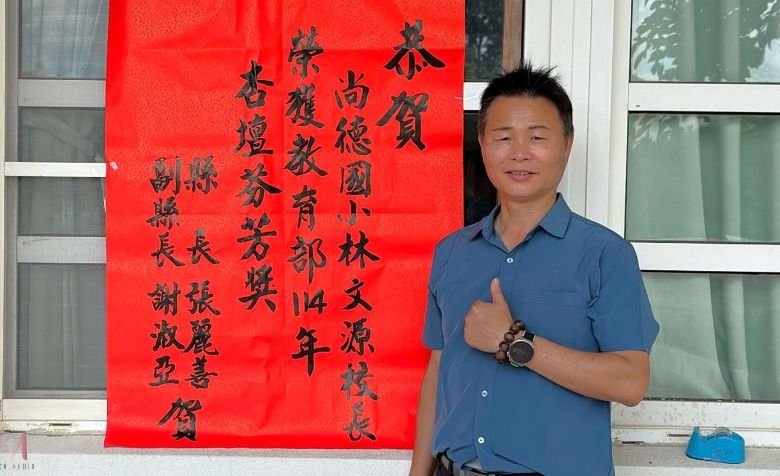 恭賀
尚德國小林文源校長
榮獲教育部114年
杏壇芬芳獎
縣長 張麗善
副縣長 謝淑亞 賀